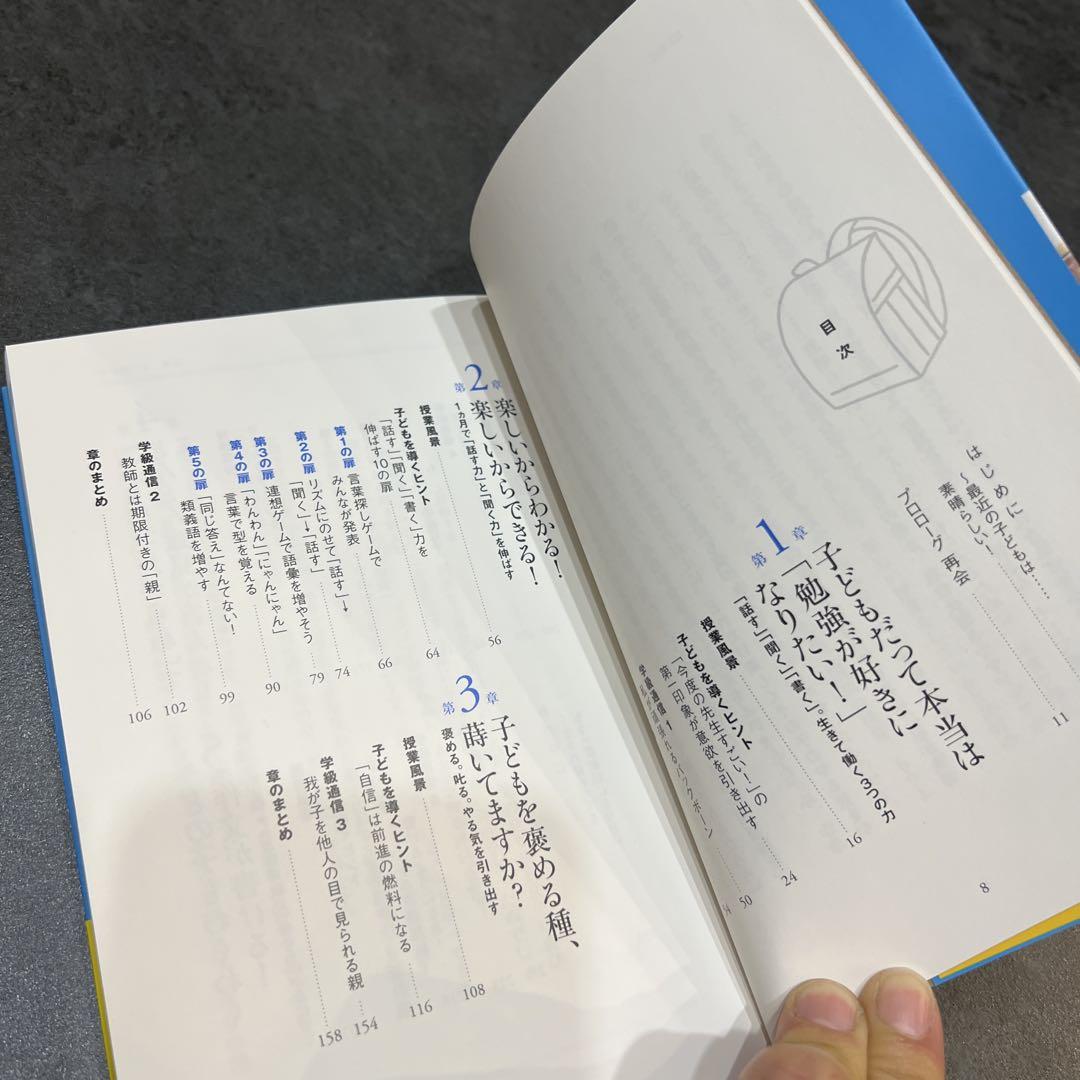 目次
はじめに
〜最近の子どもは…
素晴らしい！
プロローグ 再会
11
第1章
子どもだって本当は
「勉強が好きに
なりたい！」
「話す」「聞く」「書く」。生きて働く3つの力
授業風景
16
子どもを導くヒント
「今度の先生すごい！」の
第一印象が意欲を引き出す
24
学級通信 1
バックボーン
50
54
8
第2章
楽しいからわかる！
楽しいからできる！
1ヵ月で「話す力」と「聞く力」を伸ばす
授業風景
56
子どもを導くヒント
「話す」「聞く」「書く」力を
伸ばす10の扉
64
第1の扉 言葉探しゲームで
みんなが発表
66
第2の扉 リズムにのせて「話す」→
「聞く」→「話す」
74
第3の扉 連想ゲームで語彙を増やそう
79
第4の扉 「わんわん」「にゃんにゃん」
言葉で型を覚える
90
第5の扉 「同じ答え」なんてない！
類義語を増やす
99
学級通信 2
教師とは期限付きの「親」
102
章のまとめ
106
第3章
子どもを褒める種、
蒔いてますか？
褒める。叱る。やる気を引き出す
授業風景
108
子どもを導くヒント
「自信」は前進の燃料になる
116
学級通信 3
我が子を他人の目で見られる親
154
章のまとめ
158